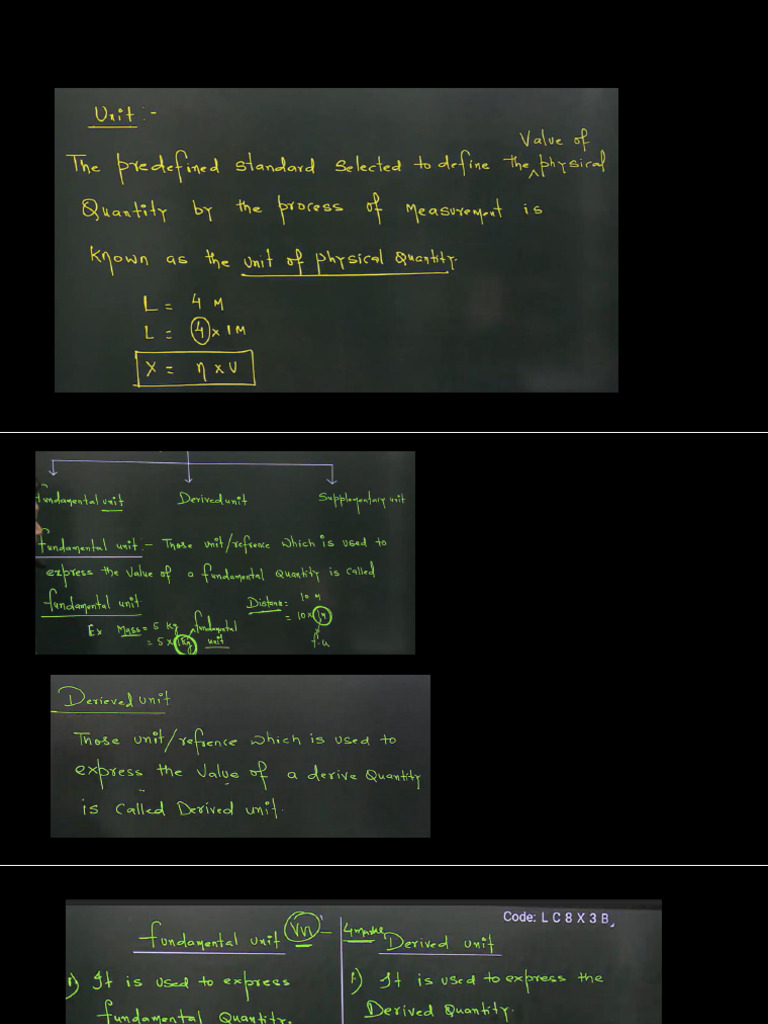 Unit :-
Value of
The predefined standard selected to define the ^ physical
Quantity by the process of measurement is
known as the unit of physical Quantity.
L = 4 M
L = 4 x 1M
X = η x U
fundamental unit
Derived unit
Supplementary unit
fundamental unit :- Those unit/refrence which is used to
express the value of a fundamental Quantity is called
fundamental unit
Distance = 10 M
= 10 x 1M
f.u
Ex Mass = 5 kg
= 5 x 1kg
fundamental
unit
Derieved unit
Those unit/refrence which is used to
express the value of a derive Quantity
is called Derived unit.
Code: L C 8 X 3 B
fundamental unit
VVI
4 marks
Derived unit
1) It is used to express
fundamental Quantity.
1) It is used to express the
Derived Quantity.